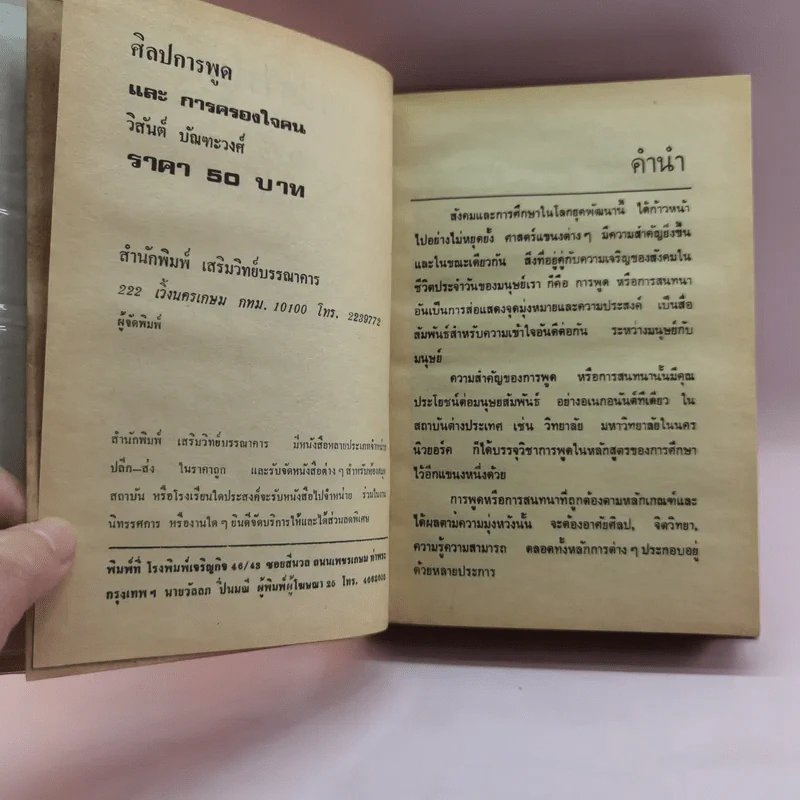 ศิลปการพูด
และ การครองใจคน
วิสันต์ บัณฑะวงศ์
ราคา 50 บาท
สำนักพิมพ์ เสริมวิทย์บรรณาคาร
222 เวิ้งนครเกษม กทม. 10100 โทร. 2239772
ผู้จัดพิมพ์
สำนักพิมพ์ เสริมวิทย์บรรณาคาร มีหนังสือหลายประเภทจำหน่าย
ปลีก—ส่ง ในราคาถูก และรับจัดหนังสือต่าง ๆ สำหรับห้องสมุด
สถาบัน หรือโรงเรียนใดประสงค์จะรับหนังสือไปจำหน่าย ร่วมในงาน
นิทรรศการ หรืองานใด ๆ ยินดีจัดบริการให้และได้ส่วนลดพิเศษ
พิมพ์ที่ โรงพิมพ์เจริญกิจ 46/43 ซอยสีนวล ถนนเพชรเกษม ท่าพระ
กรุงเทพ ฯ นายวัลลภ ปิ่นมณี ผู้พิมพ์ผู้โฆษณา 25 โทร.
คำนำ
สังคมและการศึกษาในโลกยุคพัฒนานี้ ได้ก้าวหน้า
ไปอย่างไม่หยุดยั้ง ศาสตร์แขนงต่าง ๆ มีความสำคัญยิ่งขึ้น
และในขณะเดียวกัน สิ่งที่อยู่คู่กับความเจริญของสังคมใน
ชีวิตประจำวันของมนุษย์เรา ก็คือ การพูด หรือการสนทนา
อันเป็นการส่อแสดงจุดมุ่งหมายและความประสงค์ เป็นสื่อ
สัมพันธ์สำหรับความเข้าใจอันดีต่อกัน ระหว่างมนุษย์กับ
มนุษย์
ความสำคัญของการพูด หรือการสนทนานั้นมีคุณ
ประโยชน์ต่อมนุษยสัมพันธ์ อย่างอเนกอนันต์ทีเดียว ใน
สถาบันต่างประเทศ เช่น วิทยาลัย มหาวิทยาลัยในนคร
นิวยอร์ค ก็ได้บรรจุวิชาการพูดในหลักสูตรของการศึกษา
ไว้อีกแขนงหนึ่งด้วย
การพูดหรือการสนทนาที่ถูกต้องตามหลักเกณฑ์และ
ได้ผลตามความมุ่งหวังนั้น จะต้องอาศัยศิลป, จิตวิทยา,
ความรู้ความสามารถ ตลอดทั้งหลักการต่าง ๆ ประกอบอยู่
ด้วยหลายประการ